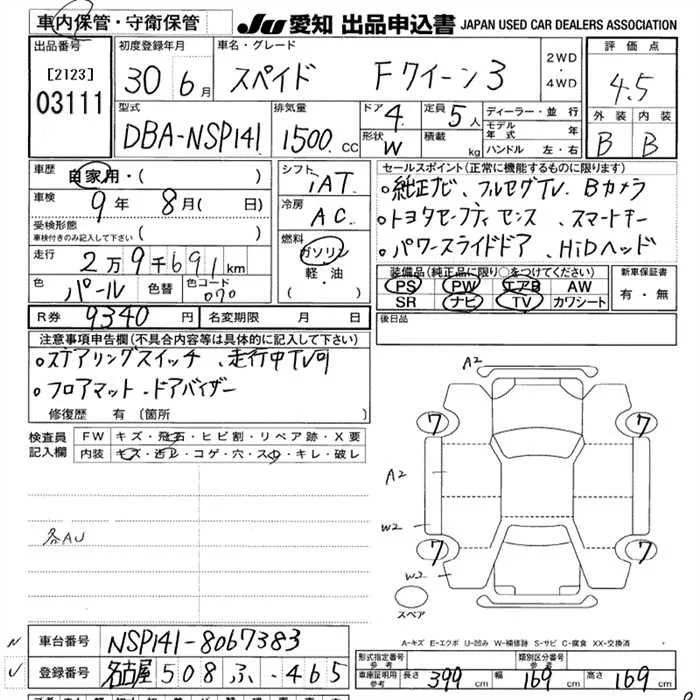 車内保管・守衛保管
JU 愛知 出品申込書 JAPAN USED CAR DEALERS ASSOCIATION
出品番号
[2123]
03111
初度登録年月
30 6月
車名・グレード
スペイド Fクイーン3
2WD
・
4WD
評価点
4.5
外装 内装
B B
型式
DBA-NSP141
排気量
1500 CC
ドア 4
定員 5人
形状 W
積載 kg
ディーラー・並行
モデル年式 年
ハンドル 左・右
車歴 自家用・( )
車検 9年 8月( 日)
受検形態
車検付きのみ記入して下さい ( )
走行 2万9千691km
色 パール 色替 色コード 070
シフト
iAT
冷房
AC
燃料
ガソリン
軽・油
( )
セールスポイント(正常に機能するものに限ります)
。純正ナビ、フルセグTV、Bカメラ
。トヨタセーフティセンス、スマートキー
。パワースライドドア、HiDヘッド
装備品(純正品に限り○をつけてください)
PS PW エアB AW
SR ナビ TV カワシート
新車保証書
有・無
R券 9340円 名変期限 月 日
後日品
注意事項申告欄(不具合内容等は具体的に記入して下さい)
。ステアリングスイッチ、走行中TV可
。フロアマット、ドアバイザー
修復歴 有 〔箇所 〕
検査員記入欄
FW キズ・飛石・ヒビ割・リペア跡・X要
内装 キズ・汚れ・コゲ・穴・スレ・キレ・破レ
各AU
A2
7 7
A2
W2
7 7
W2
スペア
A-キズ E-エクボ U-凹み W-補修跡 S-サビ C-腐食 XX-交換済
車台番号 NSP141-8067383
登録番号 名古屋 508 ふ -465
形式指定番号
参考
類別区分番号
参考
車庫証明用
参考
長さ 399cm 幅 169cm 高さ 169cm